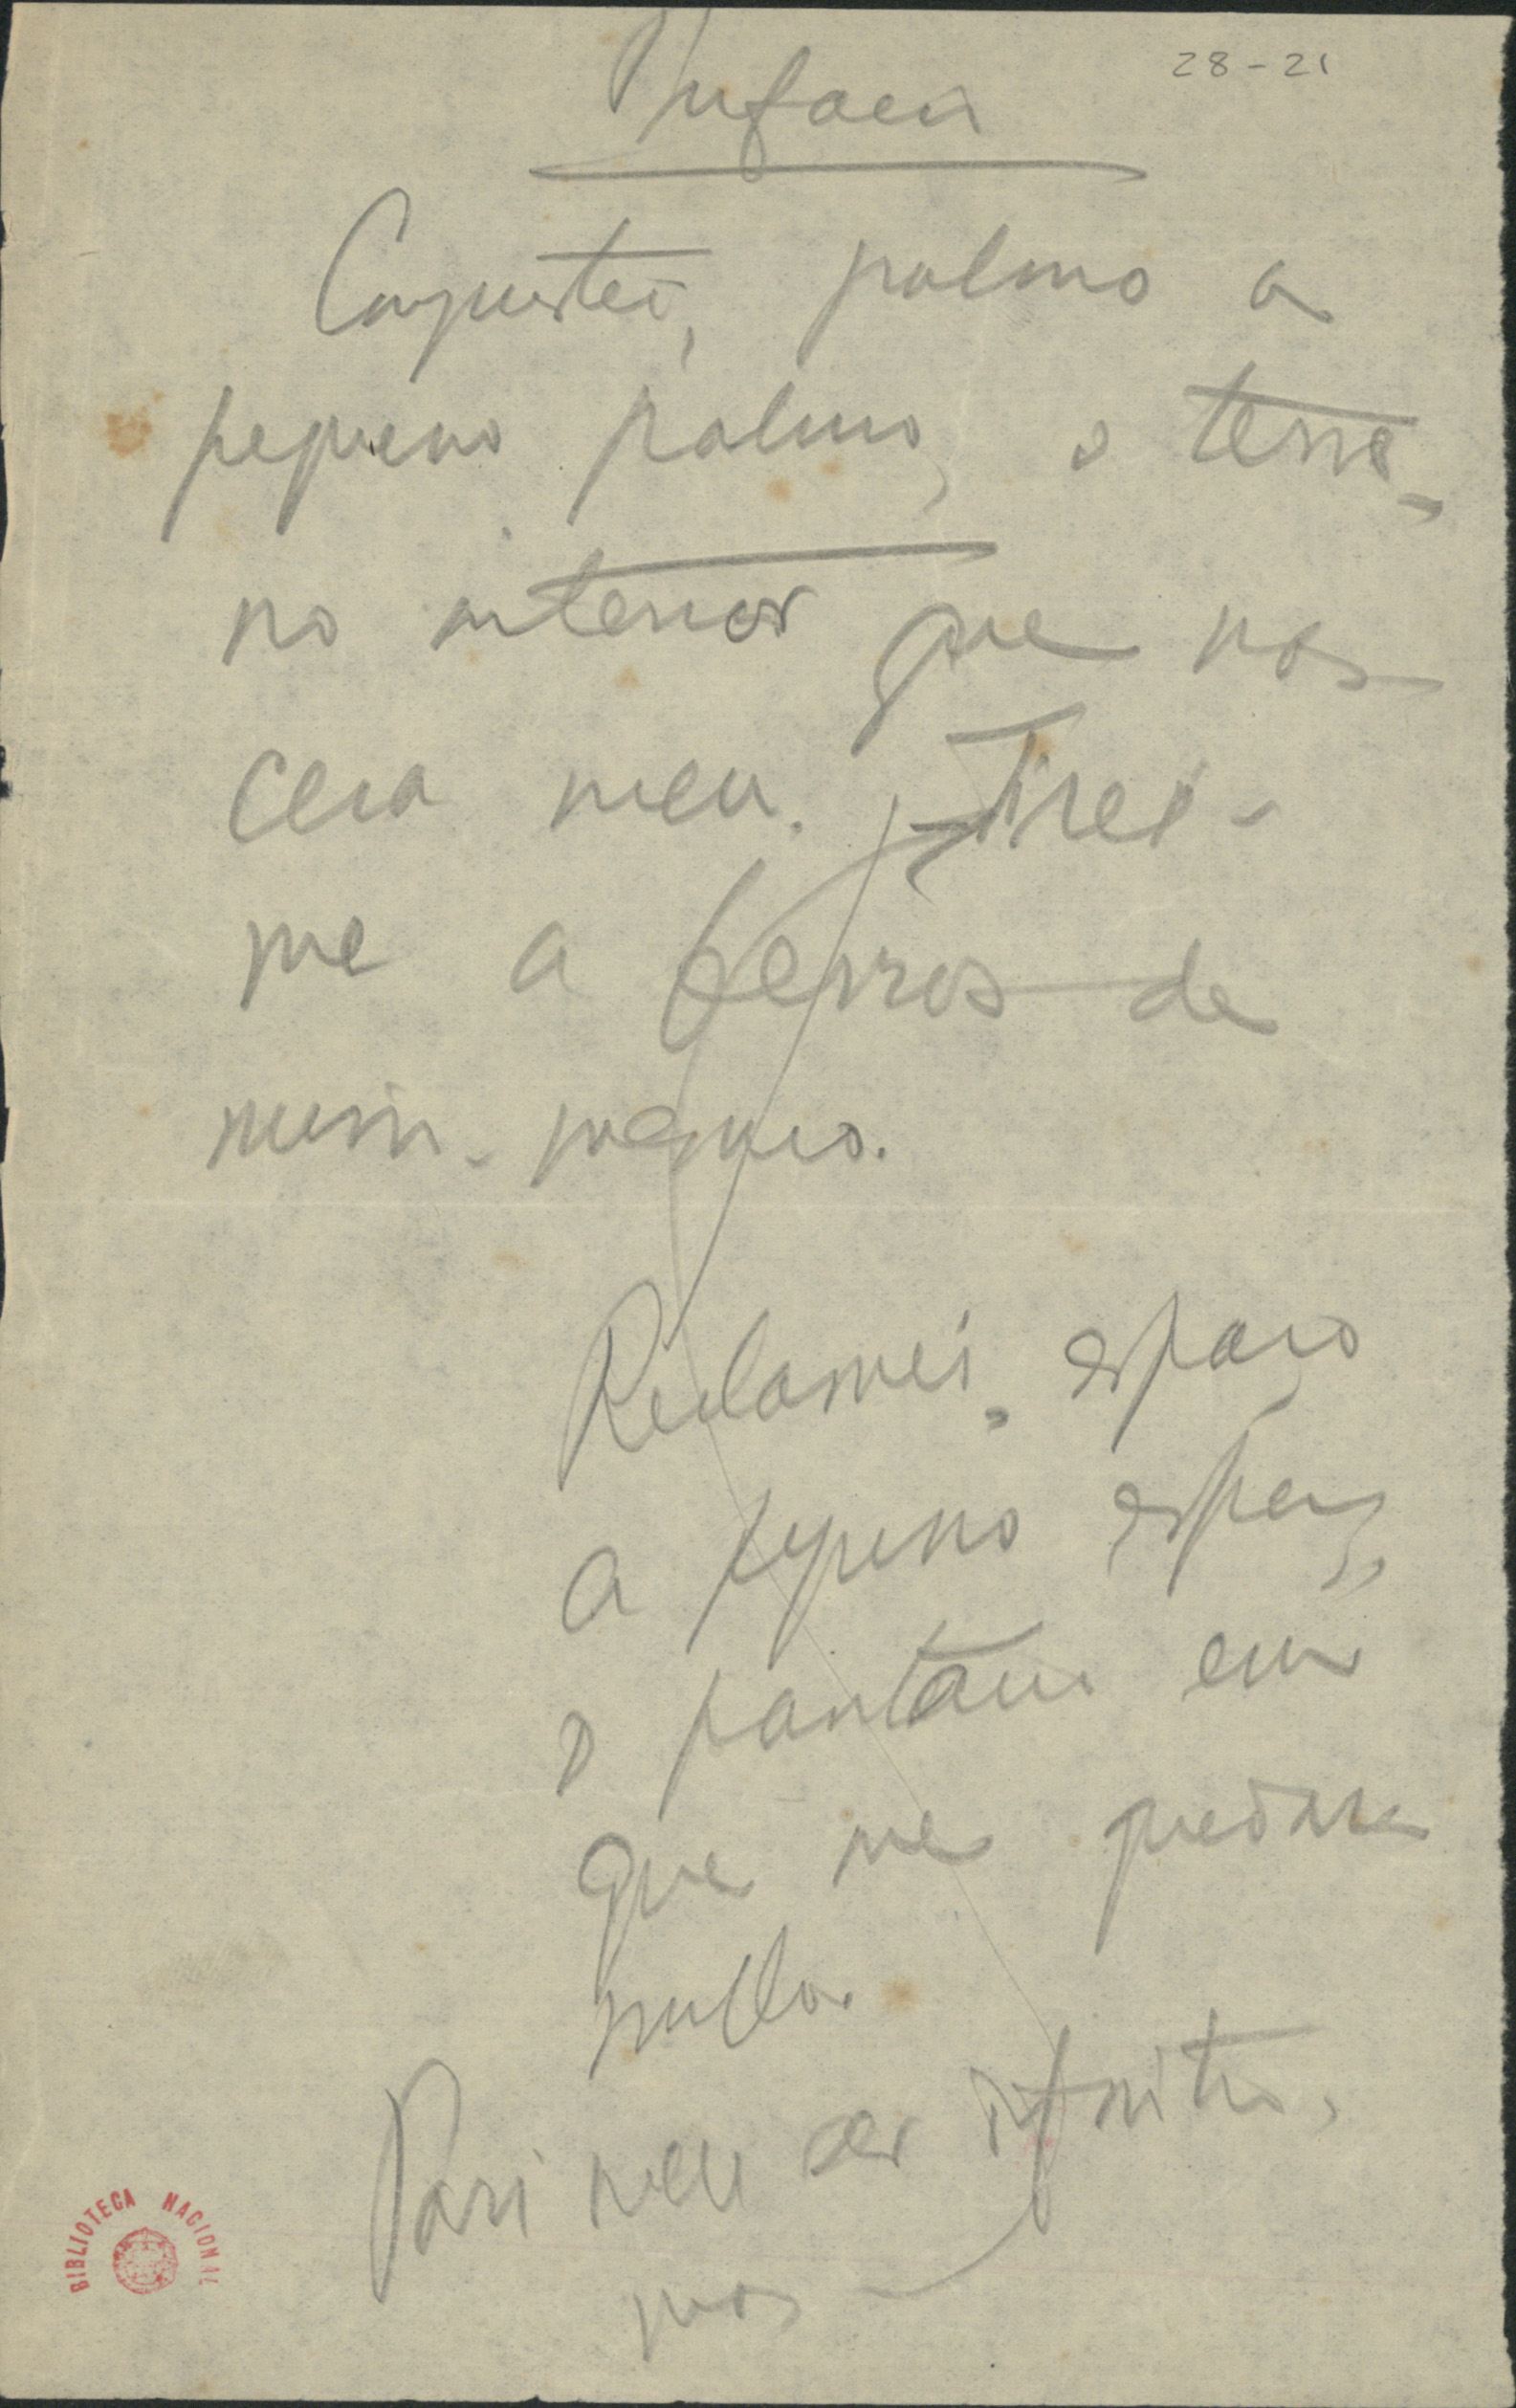 28-21
Prefacio
Conquistei, palmo a
pequeno palmo, o terre-
no interior que nas-
cera meu. Tirei-
me a ferros de
mim-mesmo.
Reclamei, espaço
a pequeno espaço,
o pantano em
que me quedara
nullo.
Pari meu ser infinito,
mas
BIBLIOTECA NACIONAL